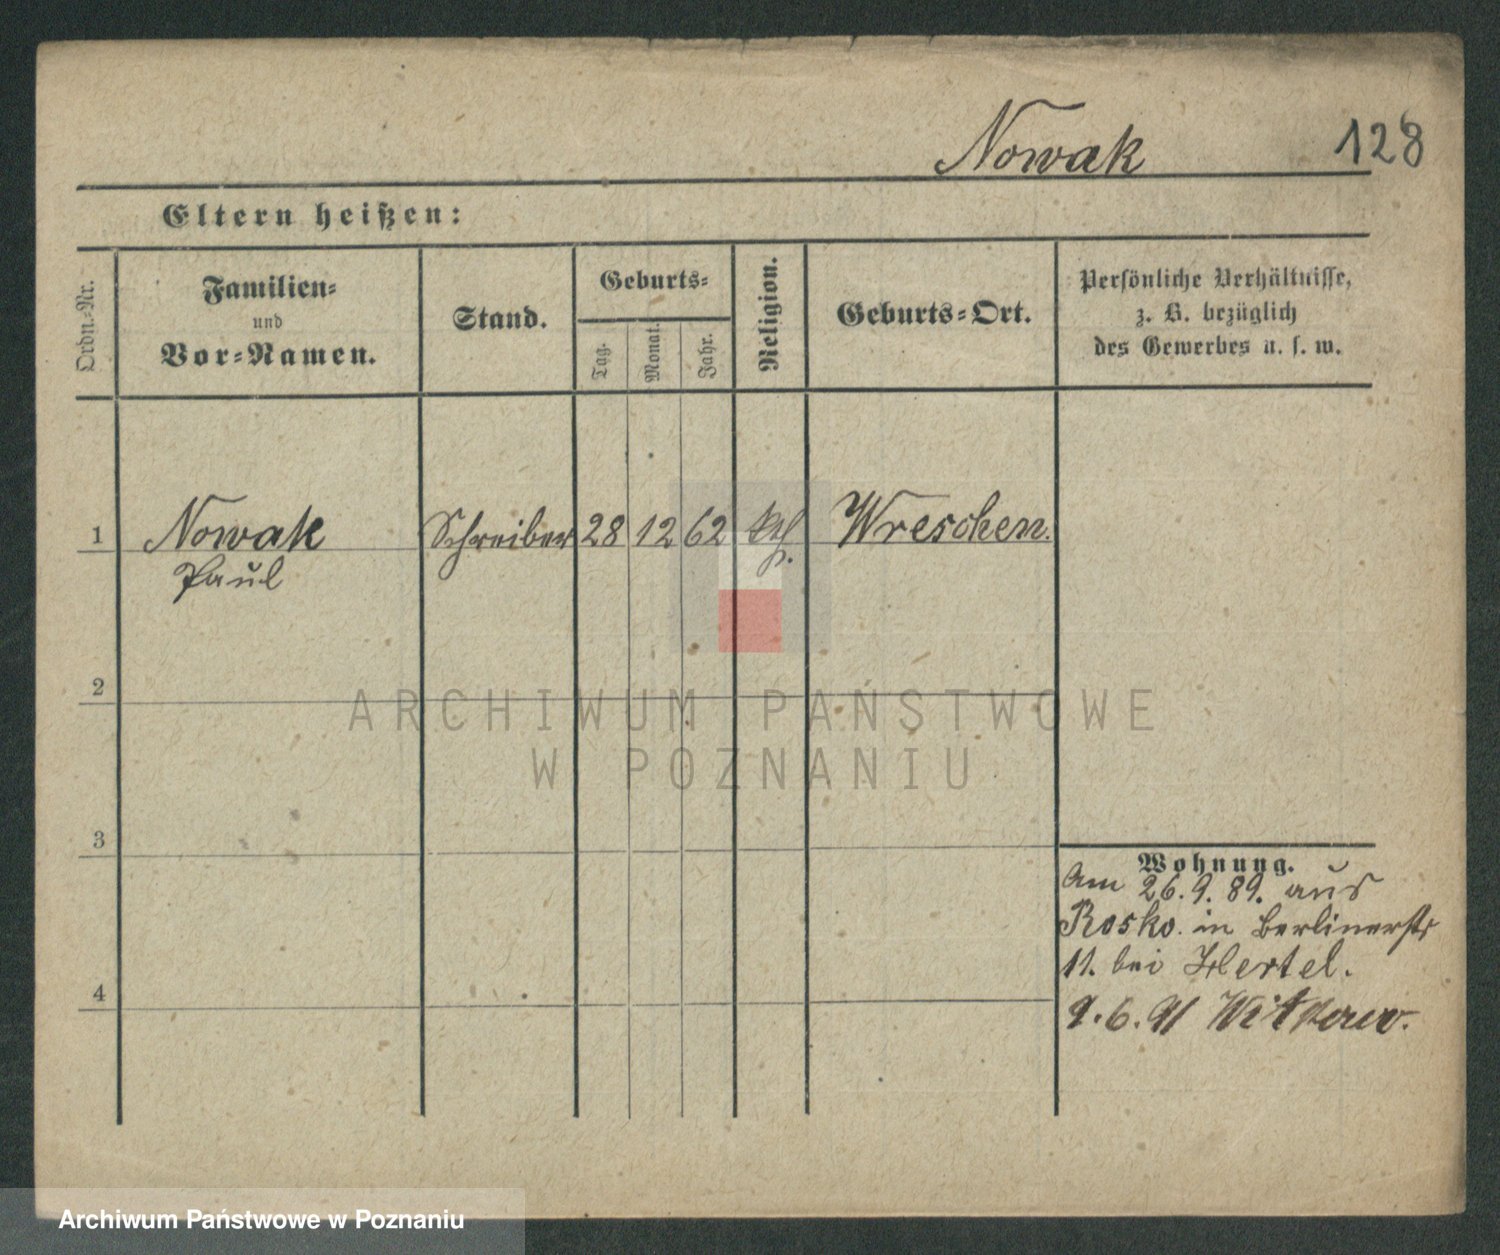 Nowak 128
Eltern heißen:
Ordn.-Nr.
Familien-
und
Vor-Namen.
Stand.
Geburts-
Tag.
Monat.
Jahr.
Religion.
Geburts-Ort.
Persönliche Verhältnisse,
z. B. bezüglich
des Gewerbes u. s. w.
1 Nowak Schreiber 28 12 62 kth. Wreschen.
Paul
2
3
4
Wohnung.
Am 26.9.89. aus
Rosko. in Berlinerstr
11. bei Hertel.
9.6.91 Witkowo.
ARCHIWUM PAŃSTWOWE
W POZNANIU
Archiwum Państwowe w Poznaniu